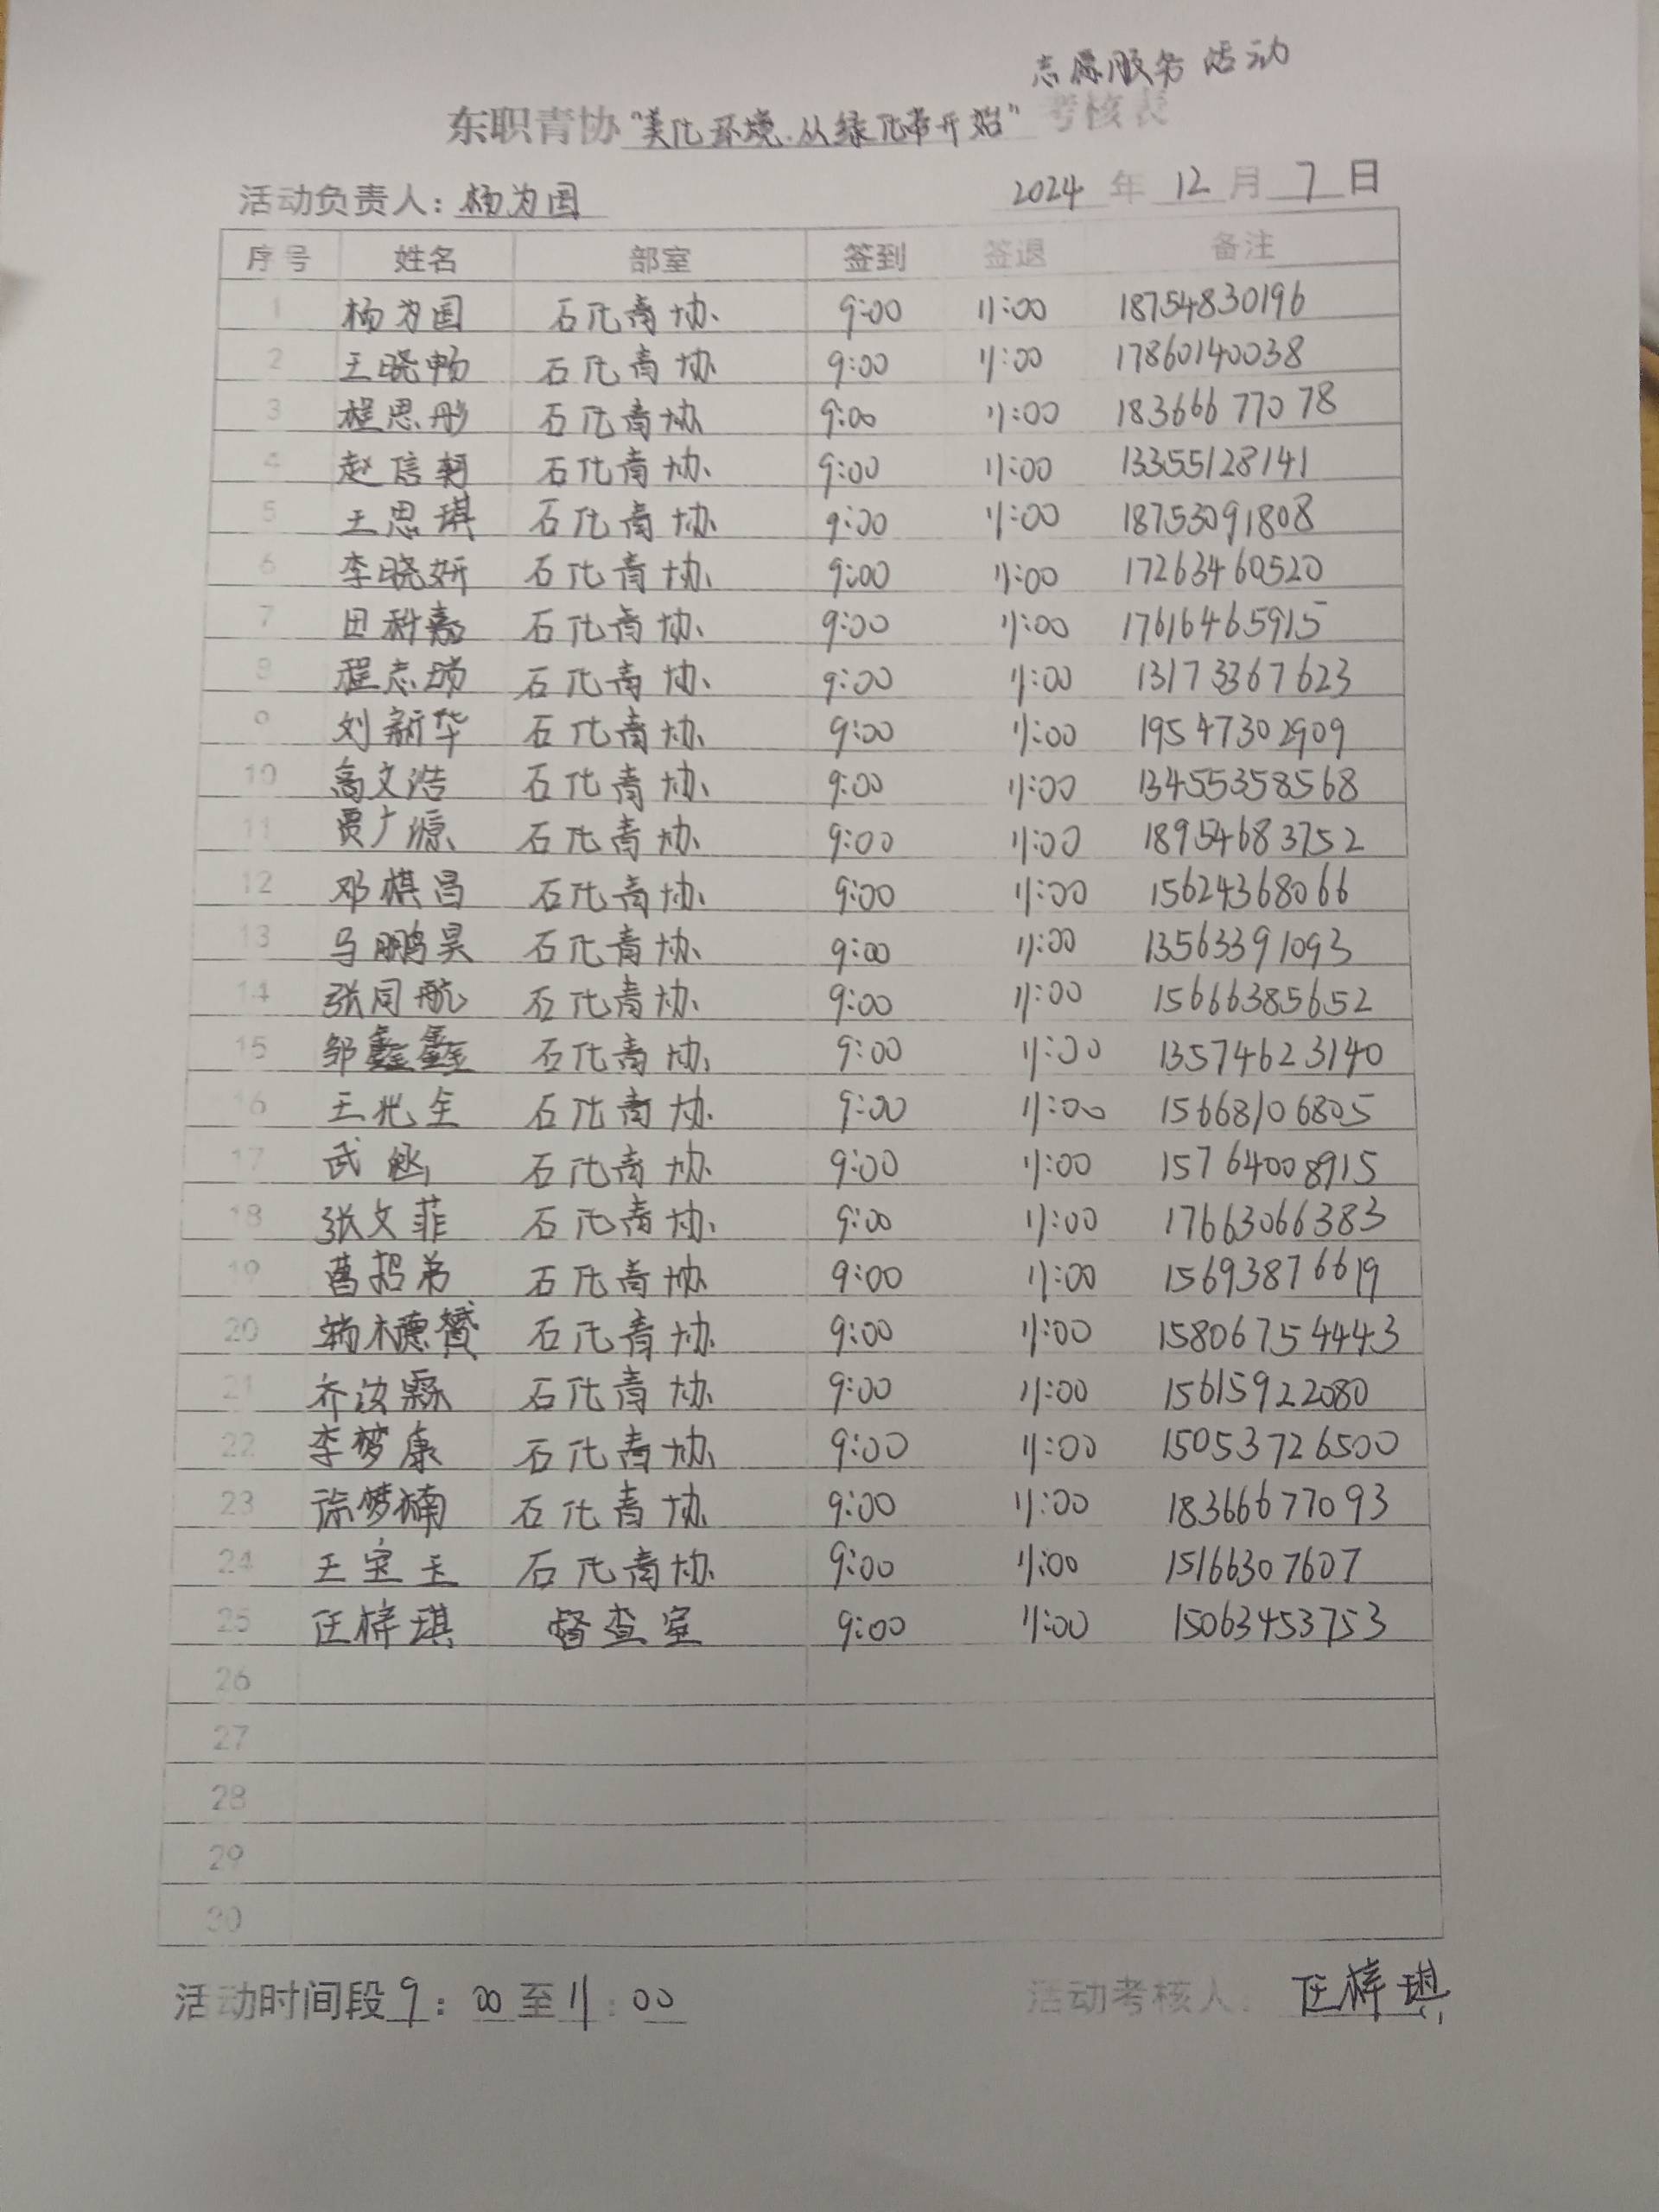 志愿服务活动
东职青协"美化环境.从绿化带开始"考核表
活动负责人：杨为国 2024年12月7日
序号 姓名 部室 签到 签退 备注
1 杨为国 石化青协 9:00 11:00 18754830196
2 王晓畅 石化青协 9:00 11:00 17860140038
3 程思彤 石化青协 9:00 11:00 18366677078
4 赵信 石化青协 9:00 11:00 13355128141
5 王思琪 石化青协 9:00 11:00 18753091808
6 李晓妍 石化青协 9:00 11:00 17263460520
7 田科嘉 石化青协 9:00 11:00 17616465915
8 程志 石化青协 9:00 11:00 13173367623
9 刘新华 石化青协 9:00 11:00 19547302909
10 高文浩 石化青协 9:00 11:00 13455358568
11 贾广源 石化青协 9:00 11:00 18954683752
12 邓棋昌 石化青协 9:00 11:00 15624368066
13 马鹏昊 石化青协 9:00 11:00 13563391093
14 张同航 石化青协 9:00 11:00 15666385652
15 邹鑫鑫 石化青协 9:00 11:00 13574623140
16 王兆全 石化青协 9:00 11:00 15668106805
17 武 石化青协 9:00 11:00 15764008915
18 张文菲 石化青协 9:00 11:00 17663066383
19 曹招弟 石化青协 9:00 11:00 15693876619
20 木德赞 石化青协 9:00 11:00 15806754443
21 齐汝霖 石化青协 9:00 11:00 15615922080
22 李梦康 石化青协 9:00 11:00 15053726500
23 徐梦楠 石化青协 9:00 11:00 18366677093
24 王宝玉 石化青协 9:00 11:00 15166307607
25 任梓琪 督查室 9:00 11:00 15063453753
26
27
28
29
30
活动时间段 9：00 至 11：00 活动考核人：任梓琪